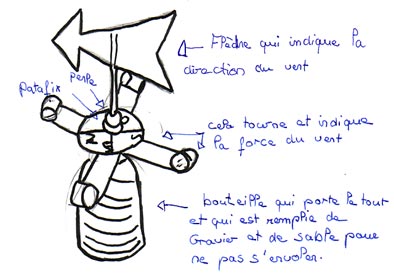 Flèche qui indique la
direction du vent
perle
patafix
cela tourne et indique
la force du vent
N
S
bouteille qui porte le tout
et qui est remplie de
Gravier et de sable pour
ne pas s'envoler.